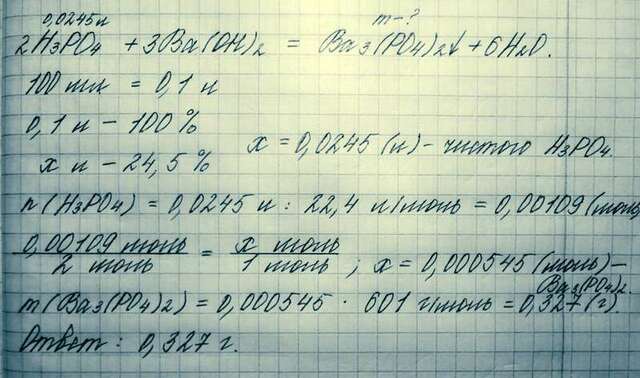 0,0245 л m-?
2H₃PO₄ + 3Ba(OH)₂ = Ba₃(PO₄)₂↓ + 6H₂O.
100 мл = 0,1 л
0,1 л - 100 %
x л - 24,5 % x = 0,0245 (л) - чистого H₃PO₄.
n(H₃PO₄) = 0,0245 л : 22,4 л/моль = 0,00109 (моль)
0,00109 моль / 2 моль = x моль / 1 моль ; x = 0,000545 (моль) - Ba₃(PO₄)₂.
m(Ba₃(PO₄)₂) = 0,000545 · 601 г/моль = 0,327 (г).
Ответ: 0,327 г.